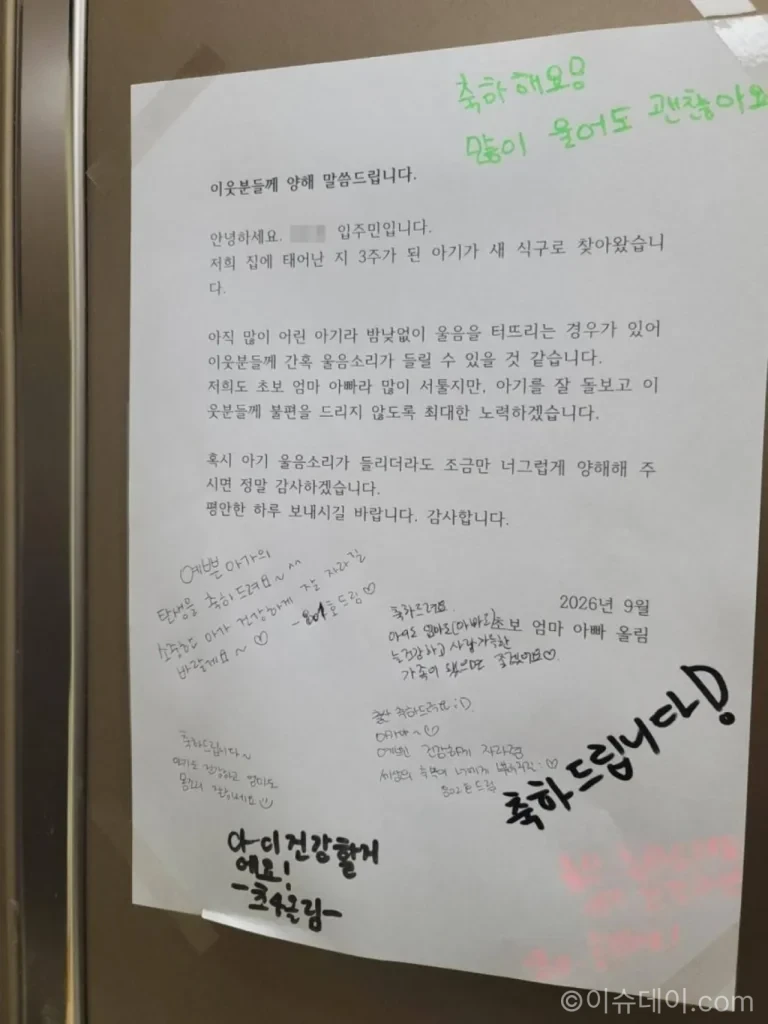 축하해요
많이 울어도 괜찮아요
이웃분들께 양해 말씀드립니다.
안녕하세요. 입주민입니다.
저희 집에 태어난 지 3주가 된 아기가 새 식구로 찾아왔습니
다.
아직 많이 어린 아기라 밤낮없이 울음을 터뜨리는 경우가 있어
이웃분들께 간혹 울음소리가 들릴 수 있을 것 같습니다.
저희도 초보 엄마 아빠라 많이 서툴지만, 아기를 잘 돌보고 이
웃분들께 불편을 드리지 않도록 최대한 노력하겠습니다.
혹시 아기 울음소리가 들리더라도 조금만 너그럽게 양해해 주
시면 정말 감사하겠습니다.
평안한 하루 보내시길 바랍니다. 감사합니다.
2026년 9월
초보 엄마 아빠 올림
예쁜 아가의
탄생을 축하드려요~^^
소중한 아가 건강하게 잘 자라길
바랄게요~♡ 드림♡
축하드려요
늘 건강하고 사랑 가득한
가족이 됐으면 좋겠어요♡
축하드려요 :D
건강하게 자라렴
축하드립니다~
아기도 건강하고 엄마도
축하드립니다!
아이 건강할거
에요!
-초4올림-
©이슈데이.com